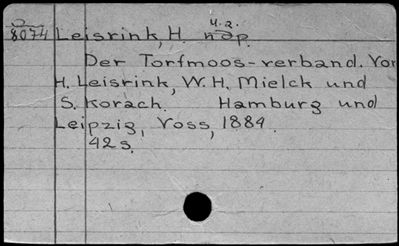 u.a.
8074 Leisrink, H. н др.
Der Torfmoos-verband. Von
H. Leisrink, W. H. Mielck und
S. Korach. Hamburg und
Leipzig, Voss, 1884.
42 s.